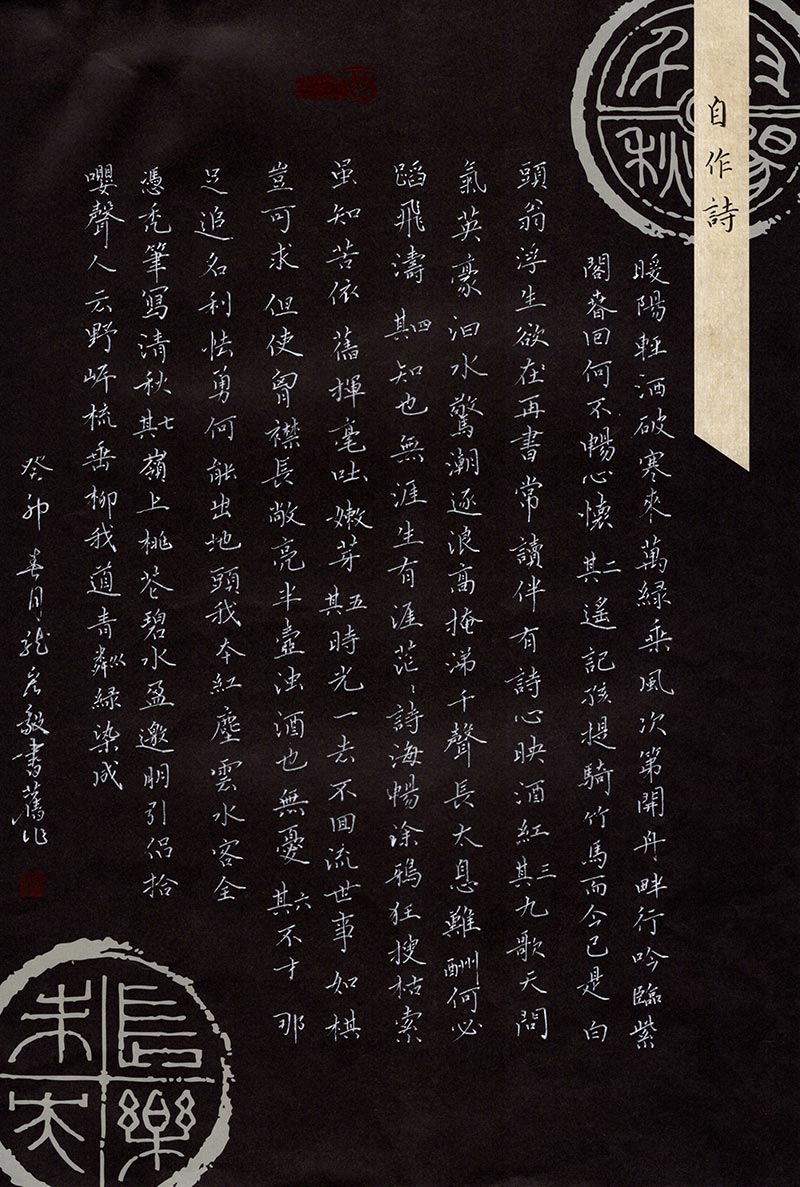 自作詩
暖陽輕洒破寒來萬緑乘風次第開丹畔行吟臨紫
閣春回何不暢心懷其二遙記孩提騎竹馬而今已是白
頭翁浮生欲在再書常讀伴有詩心映酒紅其三九歌天問
氣英豪汨水驚潮逐浪高掩涕千聲長太息難酬何必
蹈飛濤其四知也無涯生有涯茫々詩海暢涂鴉狂搜枯索
虽知苦依舊揮毫吐嫩芽其五時光一去不回流世事如棋
豈可求但使胷襟長敞亮半壺浊酒也無憂其六不才那
足追名利怯勇何能出地頭我本紅塵雲水客全
憑禿筆寫清秋其七嶺上桃花碧水盈邀朋引侣拾
嚶聲人云野岸梳垂柳我道青絲緑染成
癸卯春月張彦毅書舊作
千秋
長樂未央